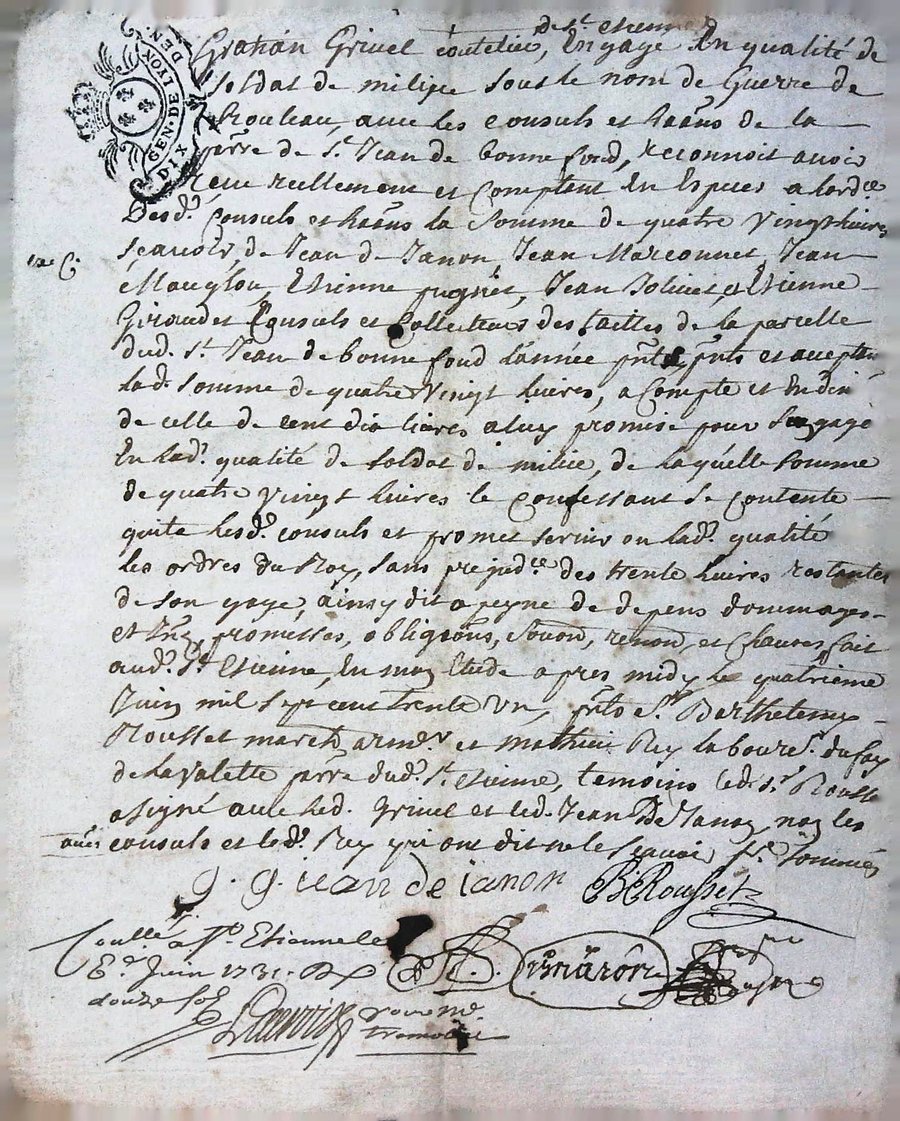 de St. Etienne
GEN. DE LYON DIX DEN.
Gratian Grivel coutelier, Engagé En qualité de
soldat de milice sous le nom de Guerre de
Rouleau, avec les consuls et haāns de la
pārre de St. Jean de bonnefond, reconnoit avoir
recu reellement et Comptant En Especes a lordce
Desd. Consuls et haāns la Somme de quatre Vingt livres
sçavoir, de Jean de Janon, Jean Marconnet, Jean
Etienne pugnet, Jean Etienne
Giraudet Consuls et Collecteurs des tailles de la parcelle
dud. St. Jean de bonne fond lannée pñte pñts et acceptan
lad. somme de quatre Vingt livres, a Compte et En din
de celle de cent dix livres a luy promise pour Sengagé
En lad. qualité de soldat de milice, de laquelle somme
de quatre Vingt livres le Confessant se Contente
quite lesd. consuls et promet servir en lad. qualité
les ordres du Roy, sans prejudce des trente livres restantes
de son gage, ainsy dit a peyne de depens dommages
et promesses, obligaōns, renon, et Clauses, fait
aud. St. Etienne, En mon Etude apres midy le quatrieme
Juin mil Sept cent trente Un, pñts Sr. Barthelemy
Rousset march. armr. et Mathieu Rey laboure. du lay
de la Valette pārre dud. St. Etienne, temoins led. Sr. Rousset
a signé avec led. Grivel et led. Jean De Janon, non les
consuls et led. Rey qui ont dit ne le sçavoir
g. g. jean de janon B Rousset
Coullé a St. Etienne le
6e. Juin 1731. R
douze sols